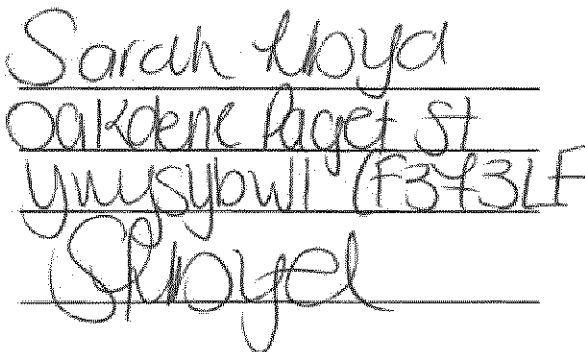 Sarah Lloyd
Oakdene Paget St
Ynysybwl CF373LF
SLloyd